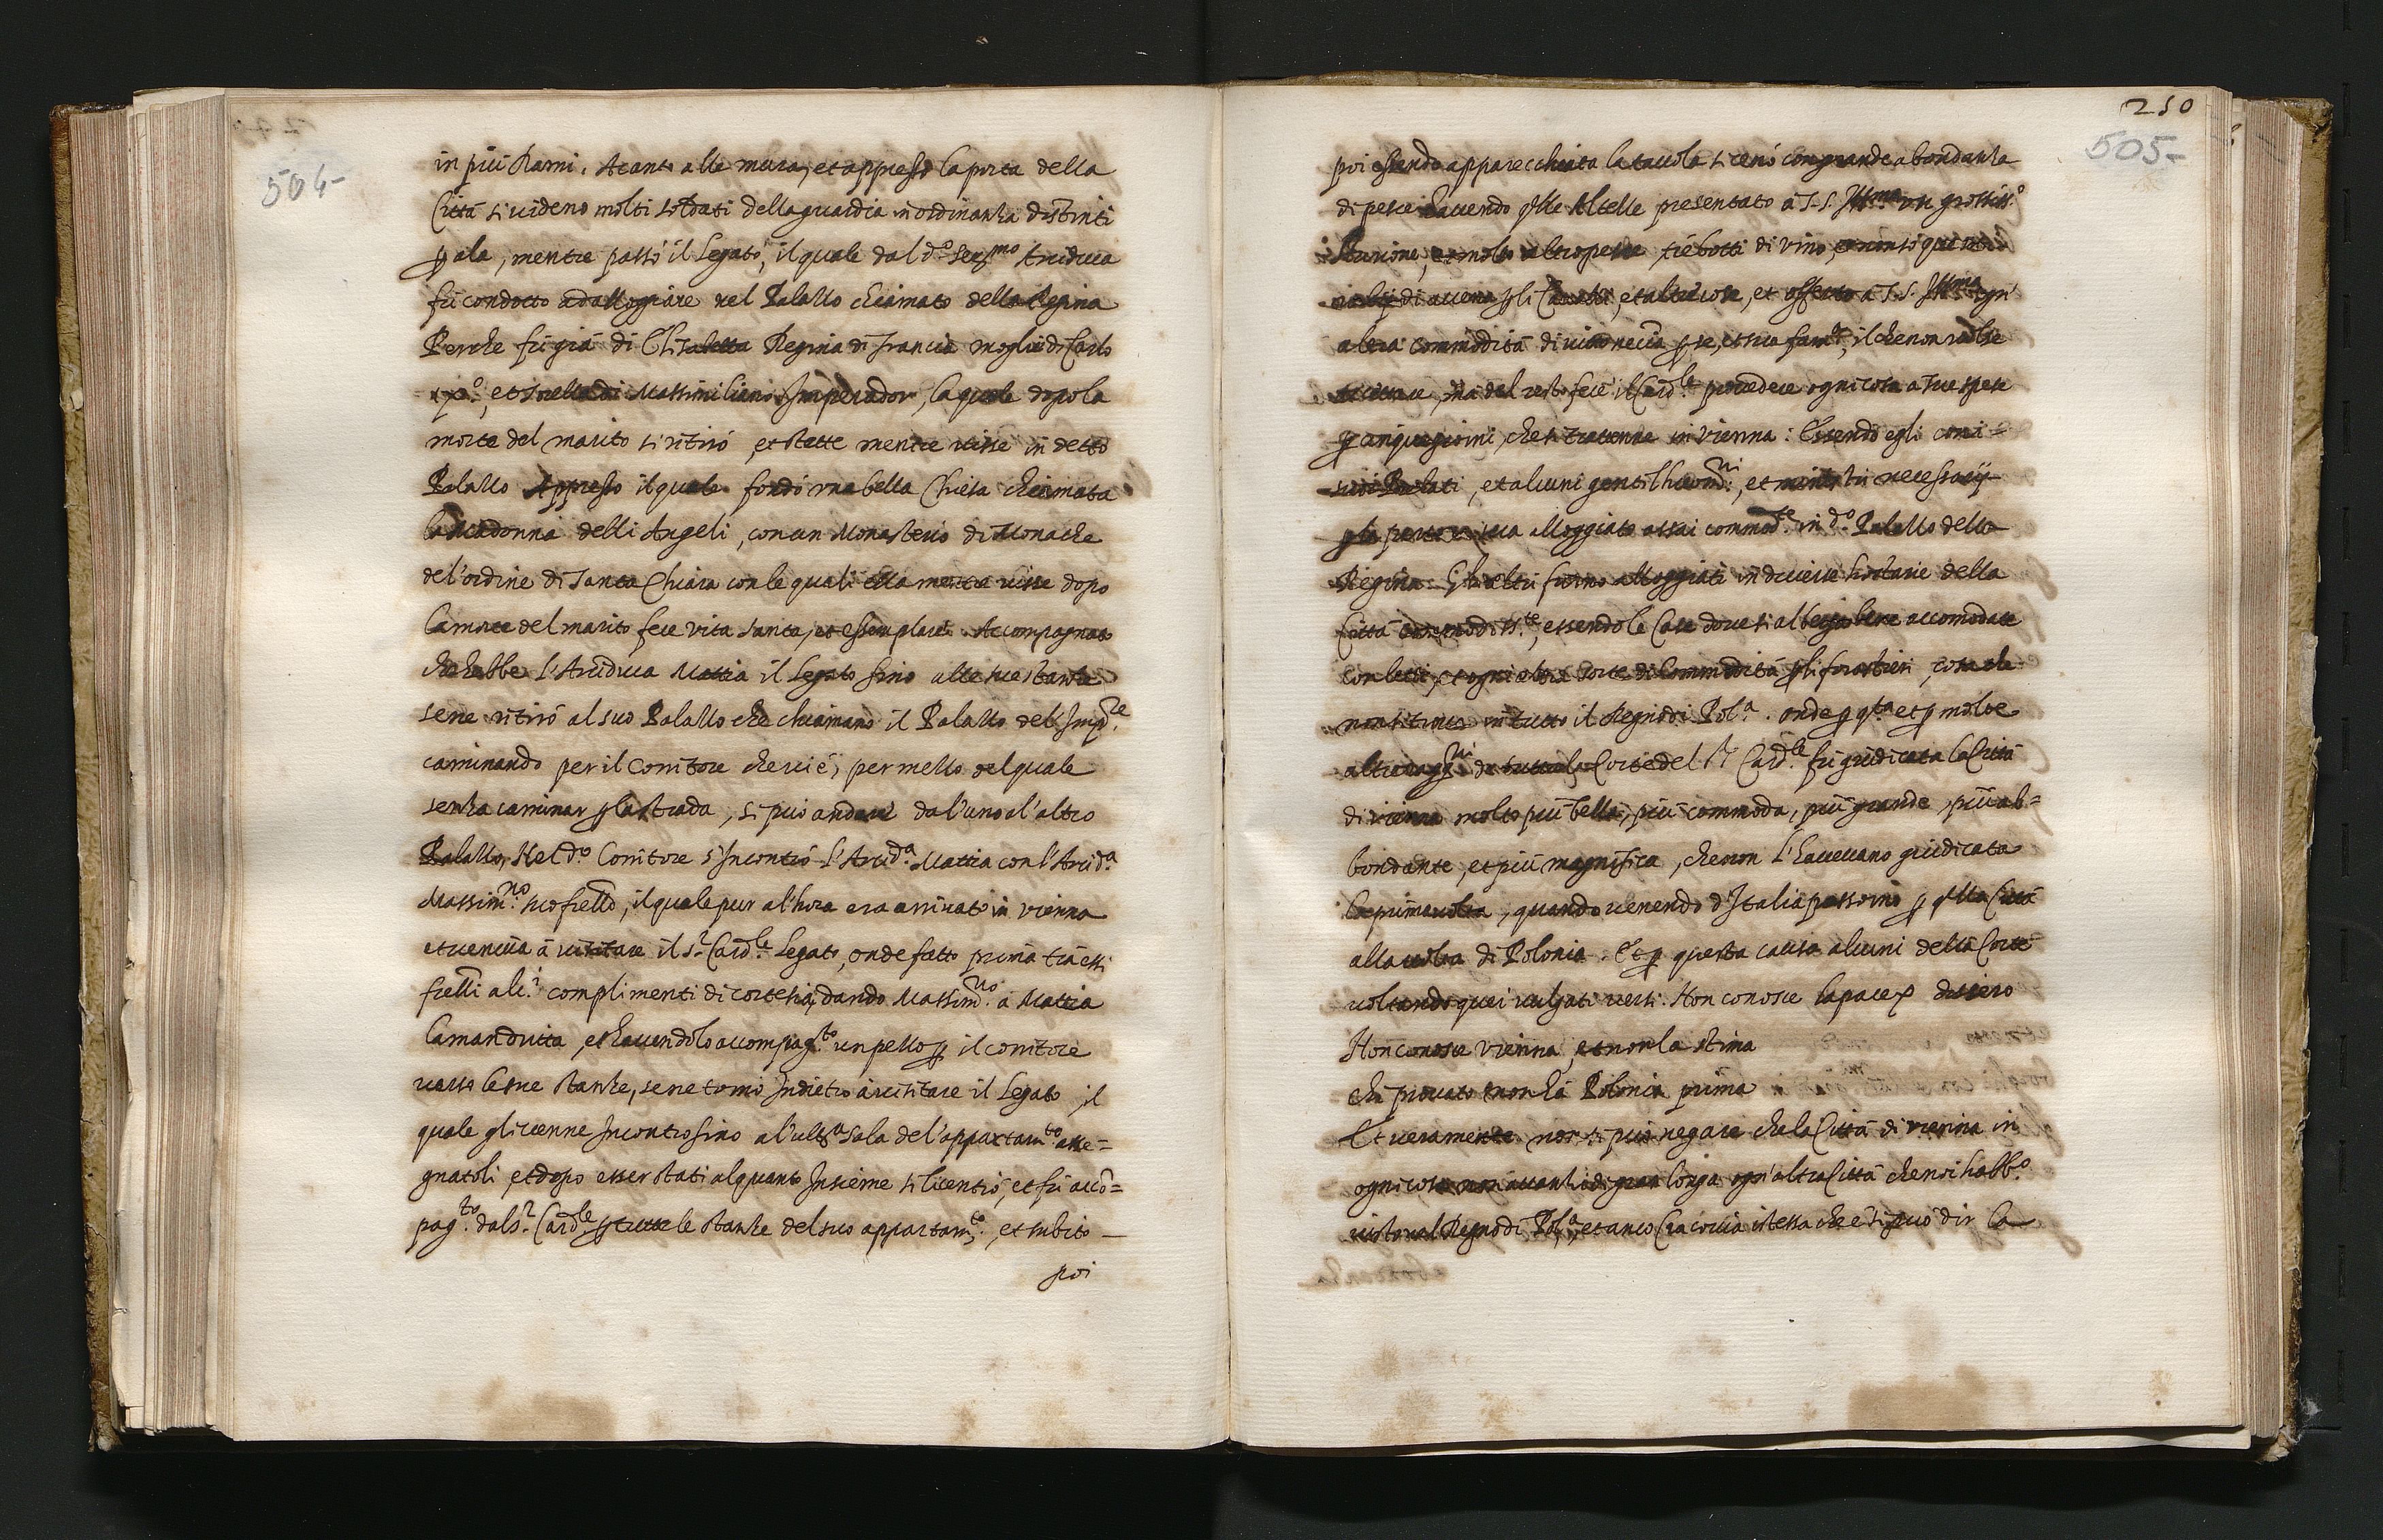 504-
in più Rami. Acanto alle mura, et appresso la porta della
Città si videno molti soldati della guardia in ordinanza distinti
p ala, mentre passò il Legato, il quale dal d.º Ser.mo Arciduca
fù condotto ad alloggiare nel Palazzo chiamato della Regina
Perche fù già di Elisabetta Regina di Francia moglie di Carlo
et sorella di Massimiliano Imperador, la quale dopo la
morte del marito si ritirò, et stette mentre visse in detto
Palazzo Appresso il quale fondò una bella Chiesa chiamata
la Madonna delli Angeli, con un Monasterio di Monache
del'ordine di Santa Chiara con le quali ella mentre visse dopo
la morte del marito fece vita santa, et essemplare. Accompagnato
ch'hebbe l'Arciduca Mattia il Legato sino alle sue stanze
sene ritirò al suo Palazzo che chiamano il Palazzo del Imp.re
caminando per il Corritore che vi è, per mezzo del quale
senza caminar p la strada, si può andare dal'uno al'altro
Palazzo, Nel d.º Corritore s'Incontrò l'Arcid.a Mattia con l'Arcid.a
Massim.no suo frello, il quale pur al'hora era arrivato in Vienna
et veniva à visitare il S.r Card.le Legato, onde fatto prima trà essi
frelli alc.i complimenti di cortesia, dando Massim.no à Mattia
la man dritta, et havendolo accompag.to un pezzo p il corritore
verso le sue stanze, sene tornò Indietro à visitare il Legato, il
quale gli venne Incontro sino al'ult.a sala del'appartam.to asse=
gnatoli, et dopo esser stati alquanto Insieme si licentiò, et fù acco=
pag.to dal s.r Card.le p tutte le stanze del suo appartam.to, et subito
poi
250
505-
poi essendo apparecchiata la tavola si cenò con grande abondanza
di pesce havendo quelle Altezze presentato à S.S. Ill.ma un grossiss.º
Sturione, et molto altro pesce, tre botti di vino,
di avena p li Cavalli, et altre cose, et offerto à S.S. Ill.ma ogn'
altra commodità di p se, et sua fam.a, il che non volse
ma del resto fece il Card.le provedere ogni cosa a sue spese
p cinque giorni, che si trattenne in Vienna: Essendo egli con i
suoi Prelati, et alcuni gentilhuom.ni, et ministri necessarij
p la persona sua alloggiato assai commod.te in d.º Palazzo della
Regina. Gl'altri furno alloggiati in diverse hostarie della
Città commodiss.te, essendo le Case dove si alberga bene accomodate
con letti, et ogni altra sorte di Commodità p li forastieri, cosa che
non si trova in tutto il Regno di Pol.a. onde p q.ta et p molte
altre rag.ni da tutta la Corte del S.r Card.le fù giudicata la Città
di Vienna molto più bella, più commoda, più grande, più ab=
bondante, et più magnifica, che non l'havevano giudicata
la prima volta, quando venendo d'Italia passorno p q.lla Città
alla volta di Polonia. Et p questa causa alcuni della Corte
voltando quei vulgati versi. Non conosce la pace dissero
Non conosce Vienna, et non la stima
chi provato non hà Polonia prima
Et veramente non si può negare che la Città di Vienna in
ogni cosa non avanzi di gran longa ogn'altra Città che noi habb.º
visto nel Regno di Pol.a, et anco Cracovia istessa che è si può dir la